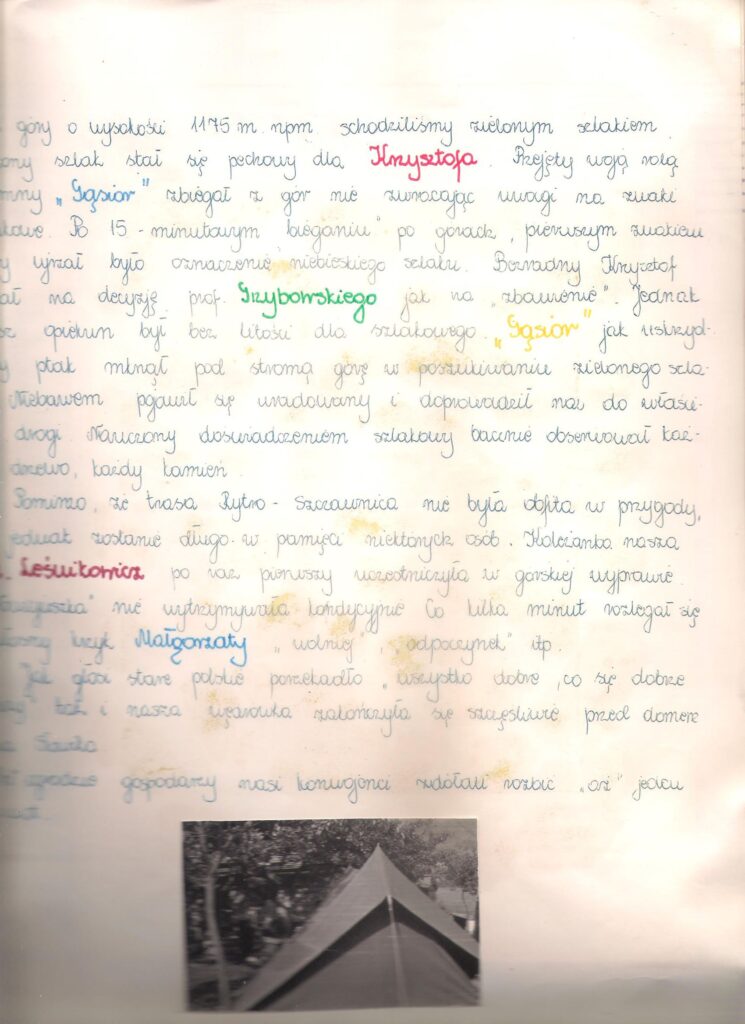 góry o wysokości 1175 m. npm schodziliśmy zielonym szlakiem.
szlak stał się pechowy dla Krzysztofa. Przejęty swoją rolą
"Gąsior" zbiegał z gór nie zwracając uwagi na znaki
Po 15-minutowym bieganiu po górach, pierwszym znakiem
ujrzał było oznaczenie niebieskiego szlaku. Bezradny Krzysztof
na decyzję prof. Grzybowskiego jak na "zbawienie". Jednak
opiekun był bez litości dla szlakowego. "Gąsior" jak uskrzyd-
ptak mknął pod stromą górę w poszukiwaniu zielonego szla-
Niebawem pojawił się uradowany i doprowadził nas do właści-
drogi. Nauczony doświadczeniem szlakowy bacznie obserwował każ-
drzewo, każdy kamień.
Pomimo, że trasa Rytro - Szczawnica nie była obfita w przygody,
jednak zostanie długo w pamięci niektórych osób. Koleżanka nasza
Leśnikowicz po raz pierwszy uczestniczyła w górskiej wyprawie.
nie wytrzymywała kondycyjnie. Co kilka minut rozlegał się
krzyk Małgorzaty "wolniej", "odpoczynek" itp.
Jak głosi stare polskie porzekadło "wszystko dobre, co się dobrze
tak i nasza wędrówka zakończyła się szczęśliwie przed domem
gospodarzy nasi zdołali rozbić "aż" jeden